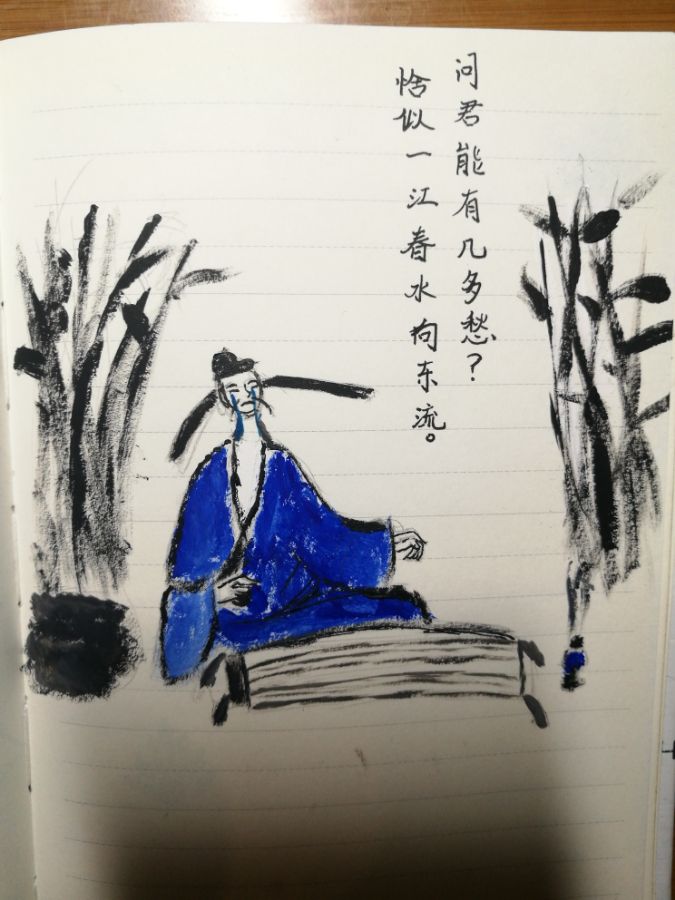 问君能有几多愁？
恰似一江春水向东流。